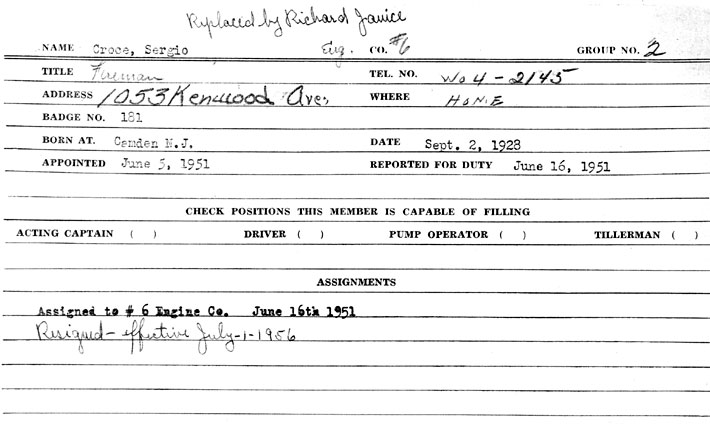 Replaced by Richard Janice
NAME Croce, Sergio Eng. CO. #6 GROUP NO. 2
TITLE Fireman TEL. NO. Wo4-2145
ADDRESS 1053 Kenwood Ave, WHERE HOME
BADGE NO. 181
BORN AT. Camden N.J. DATE Sept. 2, 1928
APPOINTED June 5, 1951 REPORTED FOR DUTY June 16, 1951
CHECK POSITIONS THIS MEMBER IS CAPABLE OF FILLING
ACTING CAPTAIN ( ) DRIVER ( ) PUMP OPERATOR ( ) TILLERMAN ( )
ASSIGNMENTS
Assigned to # 6 Engine Co. June 16th 1951
Resigned - effective July-1-1956